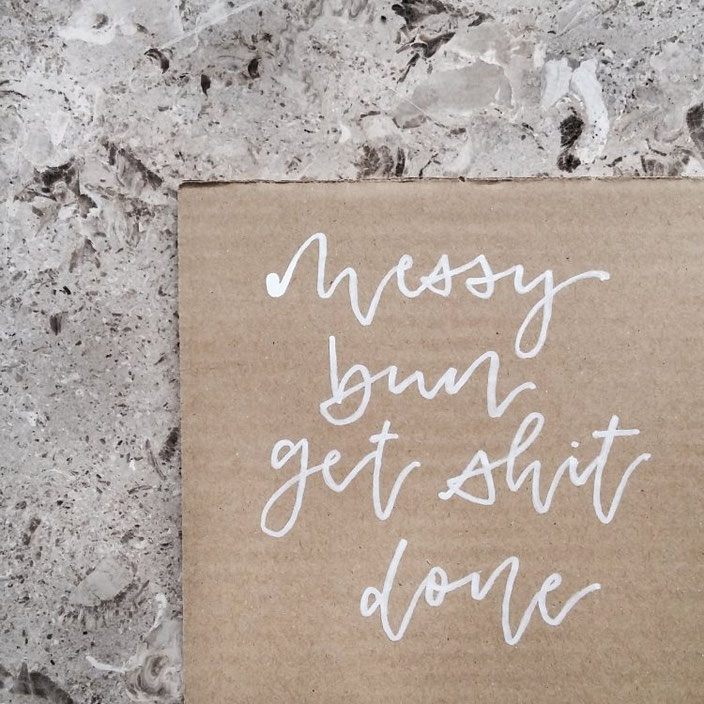 Messy
bun
get shit
done